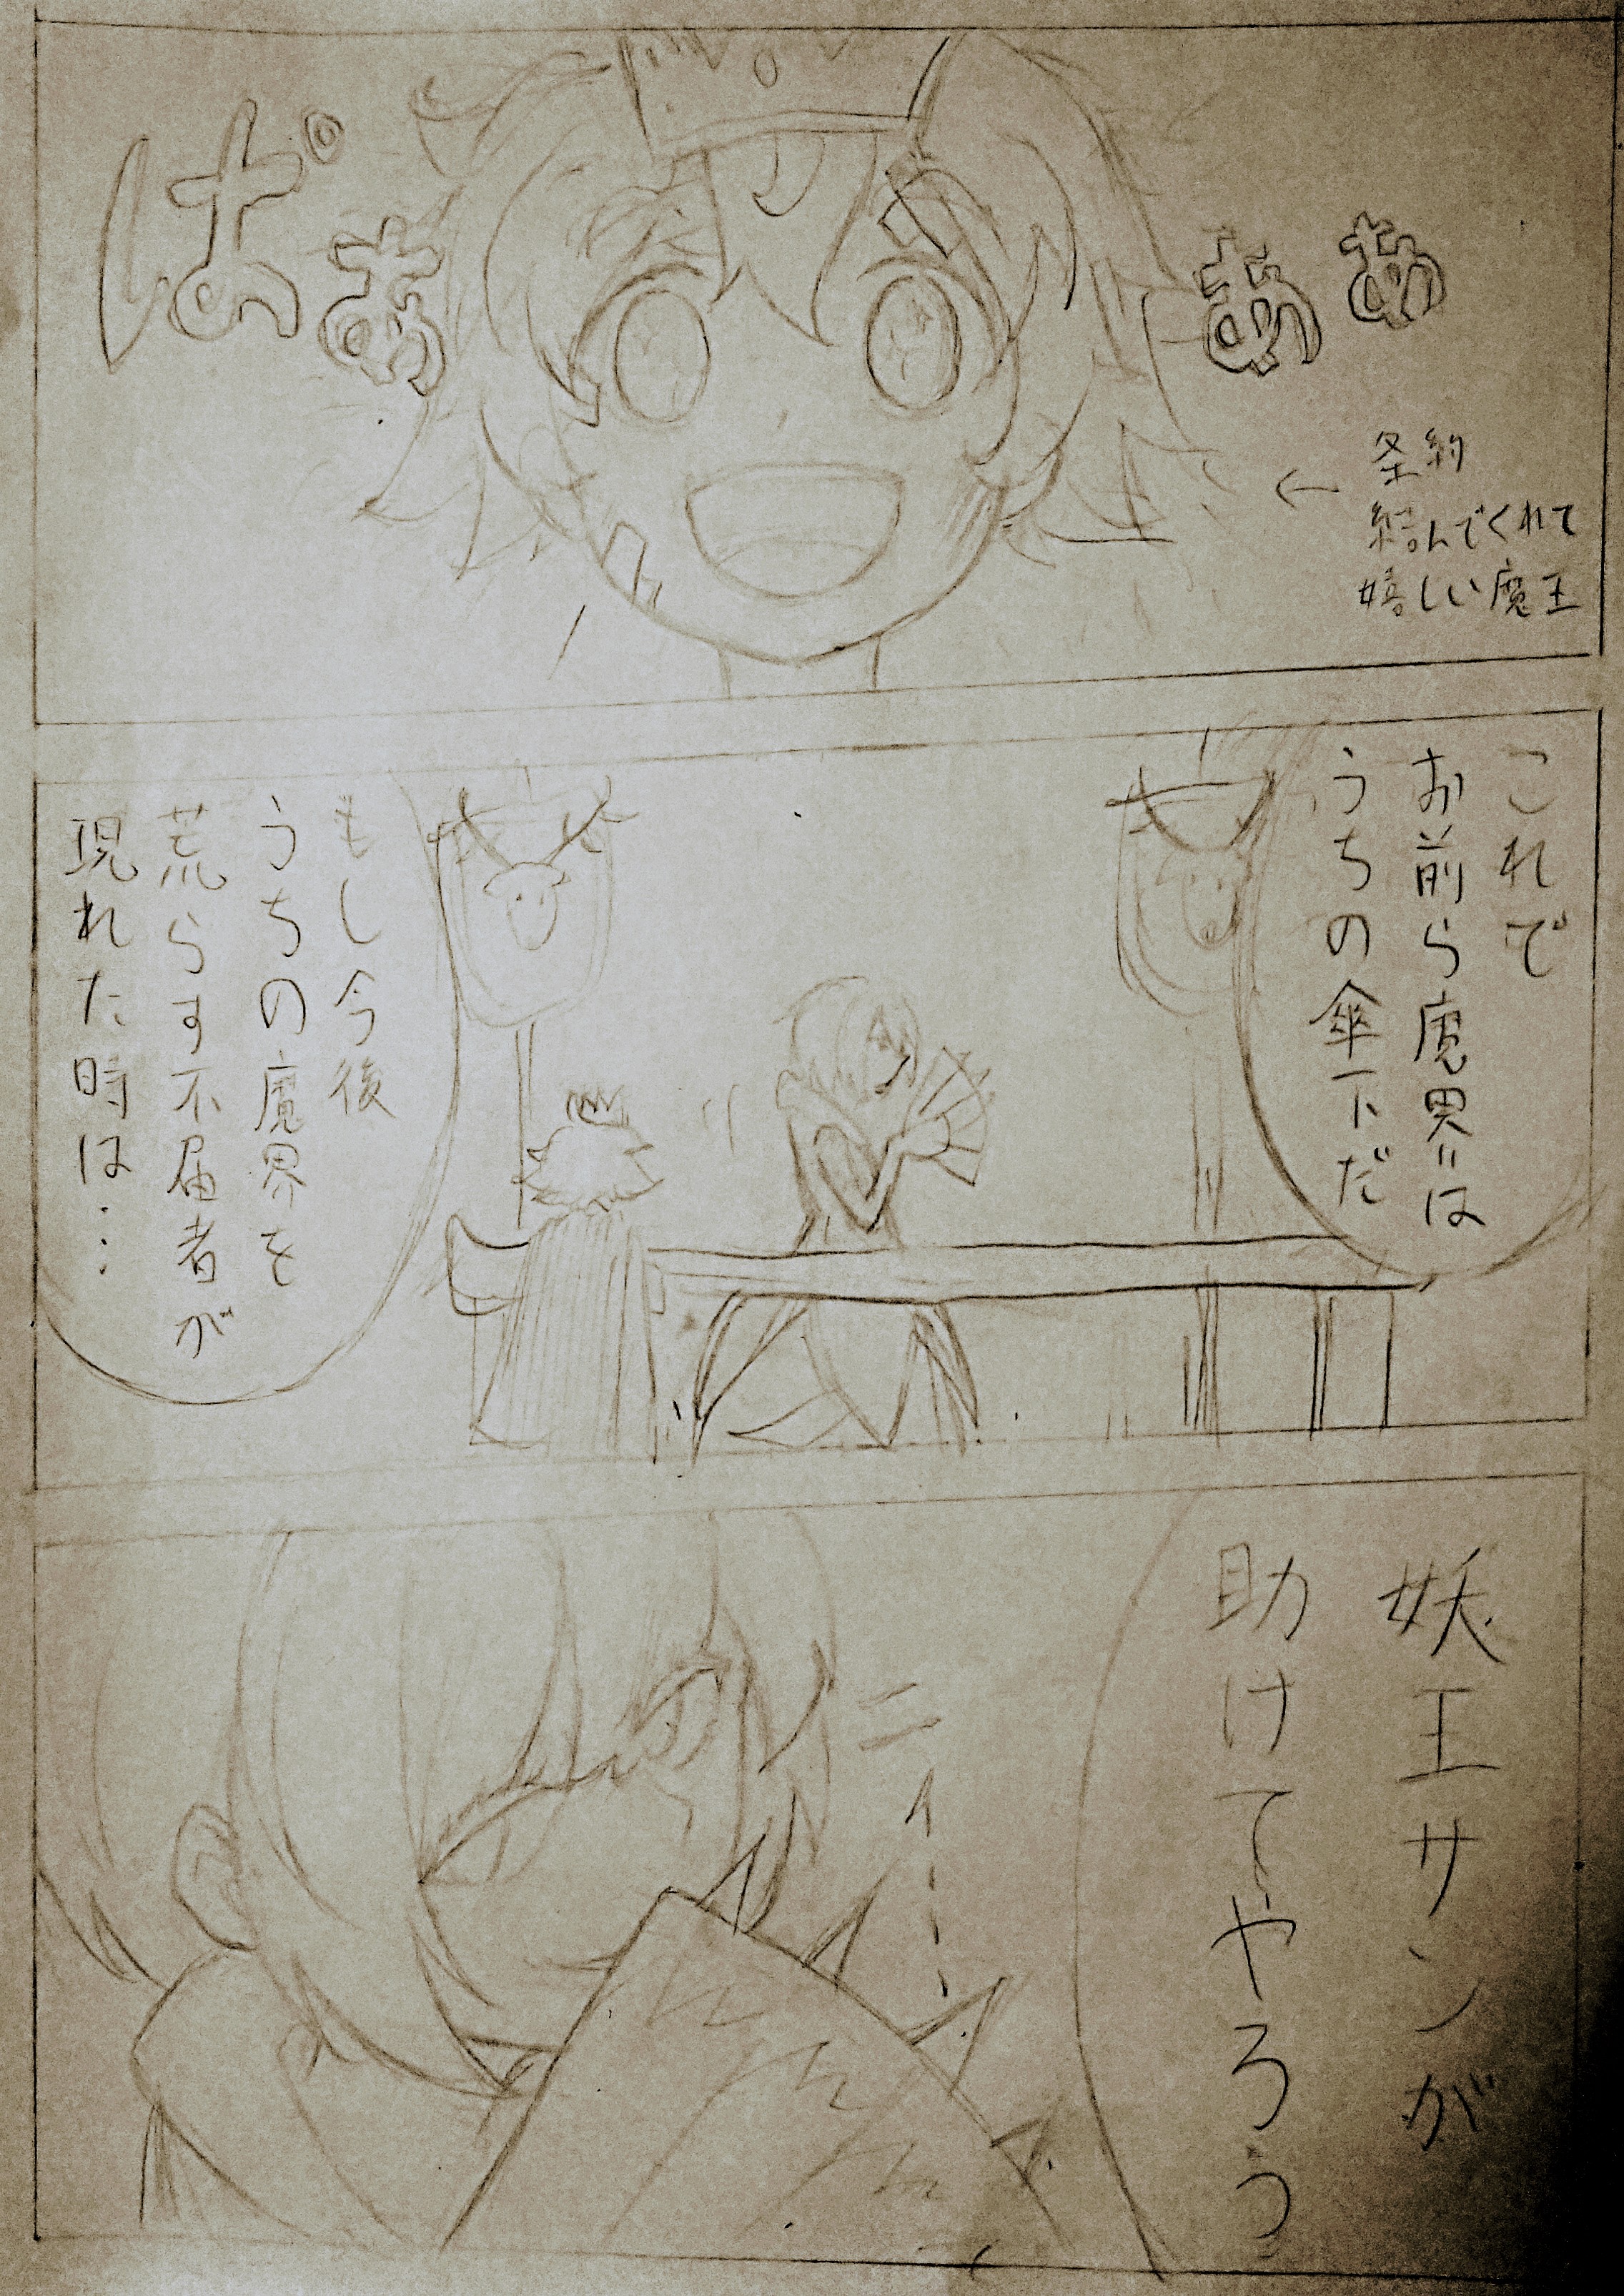 ぱぁ
ああ
条約
結んでくれて
嬉しい魔王
これで
お前ら魔界は
うちの傘下だ
もし今後
うちの魔界を
荒らす不届者が
現れた時は……
妖王サンが
助けてやろう
ニィ